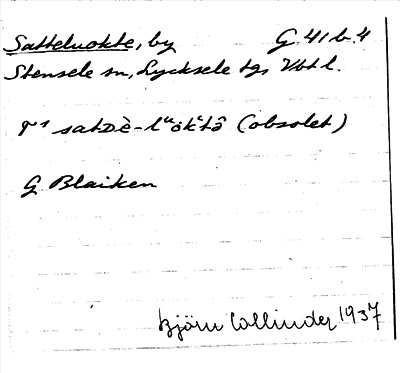 Satteluokte, by G 41 b. 4
Stensele sn, Lycksele tgs Vbtl.
satDè-lᵘökᵗtô (obsolet)
G Blaiken
Björn Collinder 1937